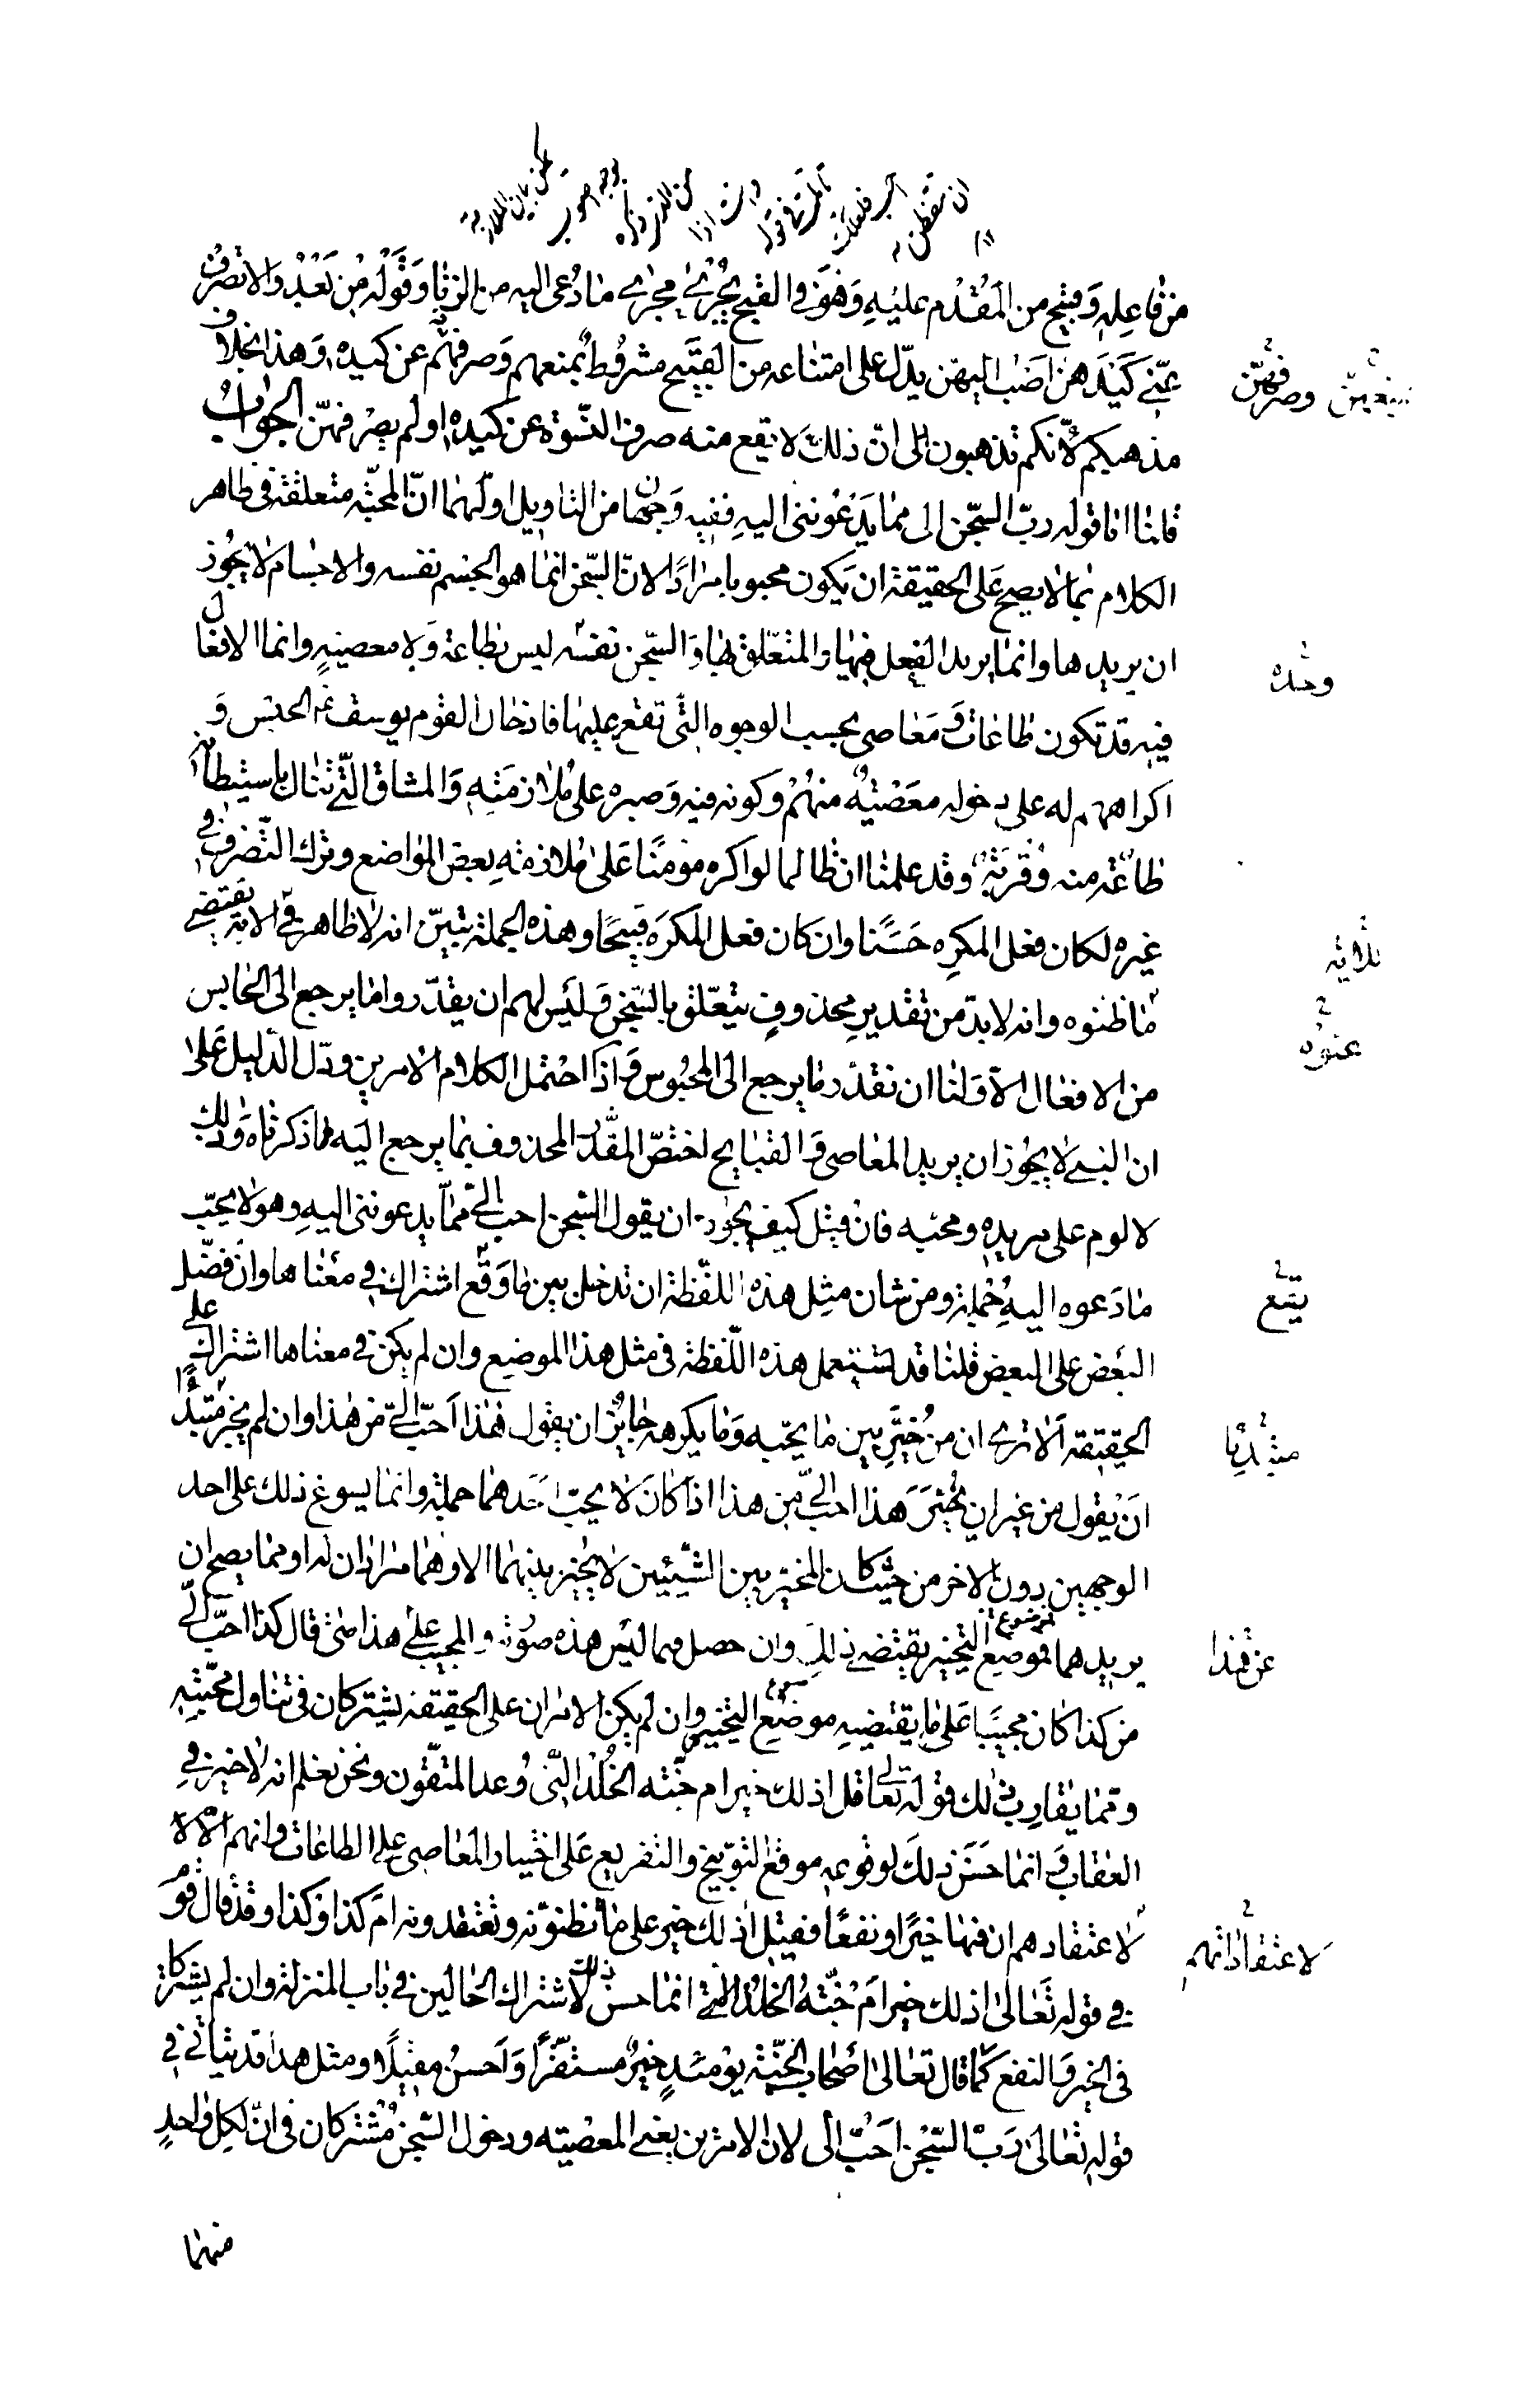 من فاعله وقبيح من المقدم عليه وهو في القبح يجري مجرى ما دعى اليه من الزنا وقوله من بعد والا تصرف
عني كيدهن اصب اليهن يدل على امتناعه من القبيح مشروط بمنعهم وصرفهم عن كيده وهذا بخلاف
مذهبكم لانكم تذهبون الى ان ذلك لا يقع منه صرف النسوة عن كيده او لم يصرفهن الجواب
قلنا اما قوله رب السجن الى مما يدعونني اليه ففيه وجهان من التاويل اولهما ان المحبة متعلقة في ظاهر
الكلام بما لا يصح على الحقيقة ان يكون محبوبا مرادا لان السجن انما هو الجسم نفسه والاجسام لا يجوز
ان يريدها وانما يريد الفعل فيها والمتعلق بها والسجن نفسه ليس بطاعة ولا معصية وانما الافعال
وحده
فيه قد تكون طاعات ومعاصى بحسب الوجوه التي تقع عليها فادخال القوم يوسف ع الحبس و
اكراههم له على دخوله معصية منهم وكونه فيه وصبره على ملازمته والمشاق التي تنال باستيطانه
طاعة منه وقربة وقد علمنا ان ظالما لو اكره مومنا على ملازمة بعض المواضع وترك التصرف في
غيره لكان فعل المكره حسنا وان كان فعل المكره قبيحا وهذه الجملة تبين انه لا ظاهر في الاية يقتضي
ما ظنوه وانه لا بد من تقدير محذوف يتعلق بالسجن وليس لهم ان يقدروا ما يرجع الى الحابس
من الافعال الا ولنا ان نقدر ما يرجع الى المحبوس واذا احتمل الكلام الامرين ودل الدليل على
ان النبي لا يجوز ان يريد المعاصى والقبايح اختص المقدر المحذوف بما يرجع اليه مما ذكرناه وذلك
لا لوم على مريده ومحبه فان قيل كيف يجوز ان يقول السجن احب الي مما يدعونني اليه وهو لا يحب
ما دعوه اليه جملة ومن شان مثل هذه اللفظة ان تدخل بين ما وقع اشتراك في معناها وان فضل
يقع
البعض على البعض قلنا قد تستعمل هذه اللفظة في مثل هذا الموضع وان لم يكن في معناها اشتراك على
الحقيقة الا ترى ان من خير بين ما يحبه وما يكرهه جايز ان يقول هذا احب الي من هذا وان لم يخير مبتدئا
مبتديا
ان يقول من غير ان يخير هذا احب الي من هذا اذا كان لا يحب احدهما جملة وانما يسوغ ذلك على احد
الوجهين دون الاخر من حيث كان المخير بين الشيئين لا يخير بينهما الا وهما مرادان له او مما يصح ان
يريدهما فموضع التخيير يقتضي ذلك وان حصل فيما ليس هذه صورته والمجيب على هذا متى قال كذا احب الي
من كذا كان مجيبا على ما يقتضيه موضوع التخيير وان لم يكن الامران على الحقيقة يشتركان في تناول محبته
ومما يقارب ذلك قوله تعالى قل اذلك خير ام جنة الخلد التي وعد المتقون ونحن نعلم انه لا خير في
العقاب وانما حسن ذلك لوقوعه موقع التوبيخ والتقريع على اختيار المعاصى على الطاعات وانهم
لاعتقادهم ان فيها خيرا ونفعا فقيل اذلك خير على ما تظنونه وتعتقدونه ام كذا وكذا وقد قال قوم
لاعتقاداتهم
في قوله تعالى اذلك خير ام جنة الخلد التي انما حسن ذلك لاشتراك الحالين في باب المنزلة وان لم يشتركا
في الخير والنفع كما قال تعالى اصحاب الجنة يومئذ خير مستقرا واحسن مقيلا ومثل هذا قد يتاتى في
قوله تعالى رب السجن احب الى لان الامرين يعني المعصية ودخول السجن مشتركان في ان لكل واحد
منهما